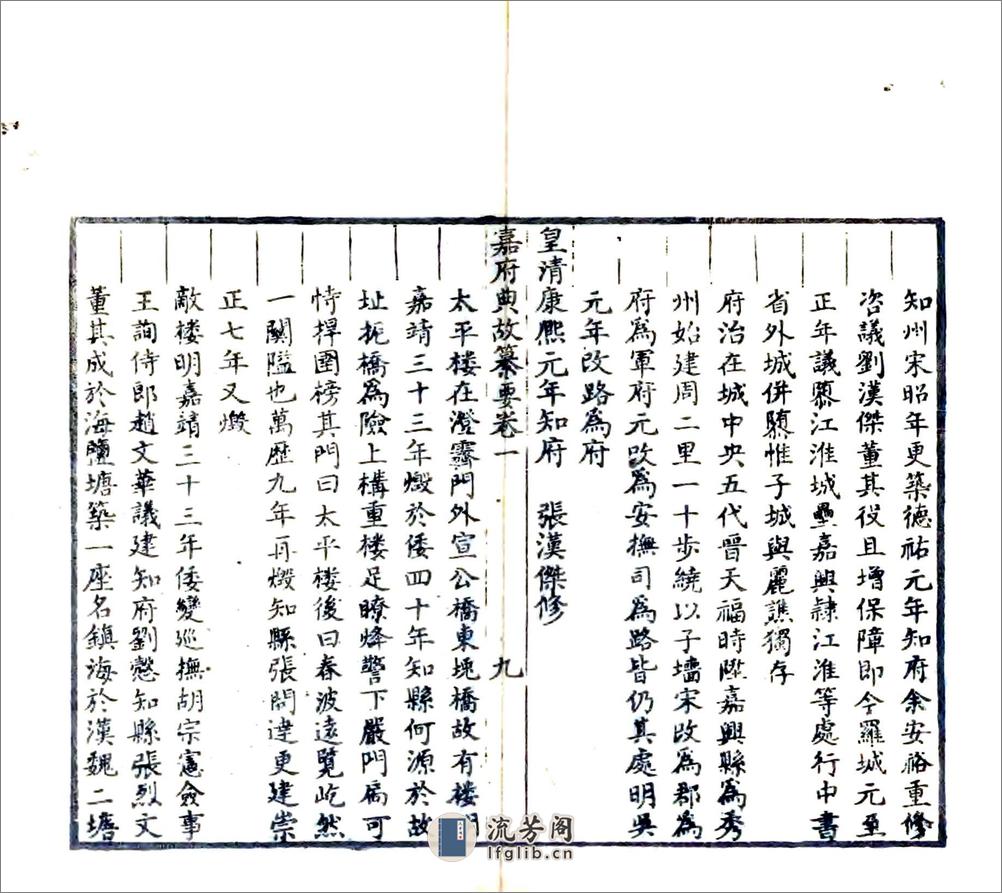 知州宋昭年更築德祐元年知府余安裕重修
咨議劉漢傑董其役且增保障即今羅城元至
正年議隳江淮城壘嘉興隷江淮等處行中書
省外城併隳惟子城與麗譙獨存
府治在城中央五代晉天福時陞嘉興縣為秀
州始建周二里一十步繞以子墻宋改為郡為
府為軍府元改為安撫司為路皆仍其處明吳
元年改路為府
皇清康熈元年知府 張漢傑修
嘉府典故纂要卷一 九
太平楼在澄霽門外宣公橋東堍橋故有楼
嘉靖三十三年燬於倭四十年知縣何源於故
址扼橋為險上構重楼足瞭烽警下嚴門扃可
恃捍圉榜其門曰太平楼後曰春波遠覽屹然
一關隘也萬歷九年再燬知縣張問達更建崇
正七年又燬
敵楼明嘉靖三十三年倭變廵撫胡宗憲僉事
王詢侍郎趙文華議建知府劉慤知縣張烈文
董其成於海鹽塘築一座名鎮海於漢魏二塘
流芳阁
lfglib.cn